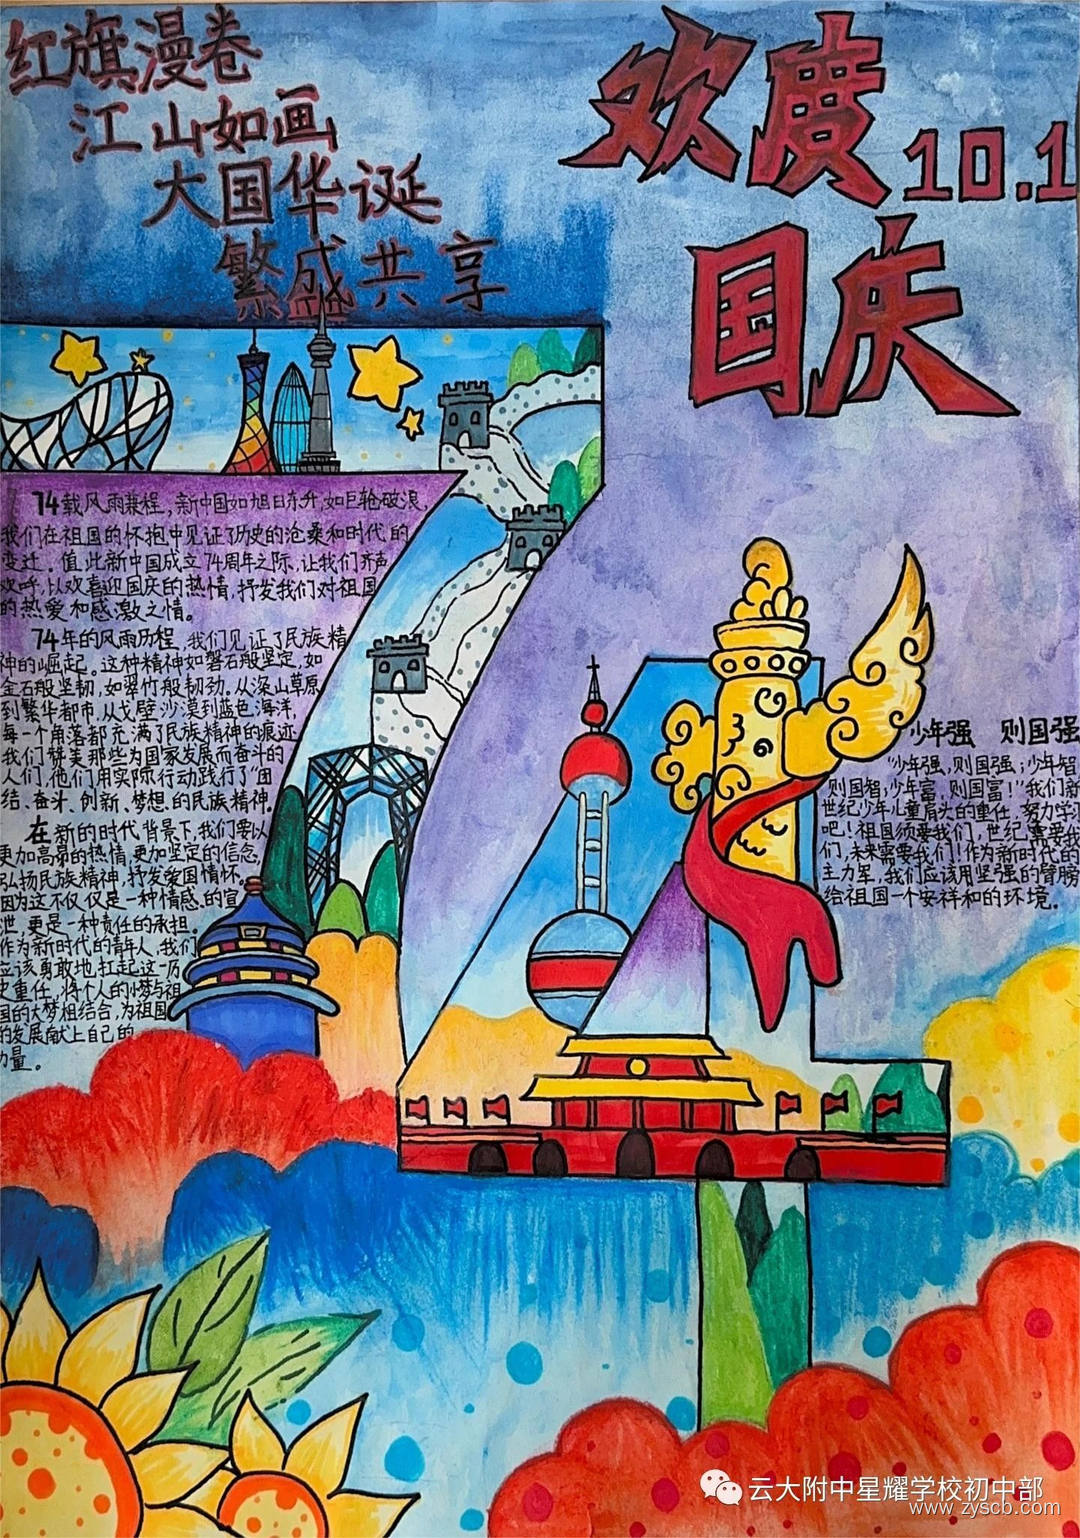 红旗漫卷
江山如画
大国华诞
繁盛共享
欢度
10.1
国庆
74载风雨兼程，新中国如旭日东升，如巨轮破浪，
我们在祖国的怀抱中见证了历史的沧桑和时代的
变迁。值此新中国成立74周年之际，让我们齐声
欢呼，以欢喜迎国庆的热情，抒发我们对祖国
的热爱和感激之情。
74年的风雨历程，我们见证了民族精
神的崛起。这种精神如磐石般坚定，如
金石般坚韧，如翠竹般韧劲。从深山草原
到繁华都市，从戈壁沙漠到蓝色海洋，
每一个角落都充满了民族精神的痕迹
我们赞美那些为国家发展而奋斗的
人们，他们用实际行动践行了“团
结、奋斗、创新、梦想、的民族精神。
在新的时代背景下，我们要以
更加高昂的热情，更加坚定的信念，
弘扬民族精神，抒发爱国情怀。
因为这不仅仅是一种情感的宣
泄，更是一种责任的承担。
作为新时代的青年人，我们
应该勇敢地扛起这一历
史重任，将个人的小梦与祖
国的大梦相结合，为祖国
的发展献上自己的
力量。
少年强 则国强
“少年强，则国强；少年智
则国智，少年富，则国富！”我们新
世纪少年儿童肩头的重任，努力学习
吧！祖国须要我们，世纪需要我
们，未来需要我们！作为新时代的
主力军，我们应该用坚强的臂膀
给祖国一个安祥和的环境。
云大附中星耀学校初中部
www.zyscb.com